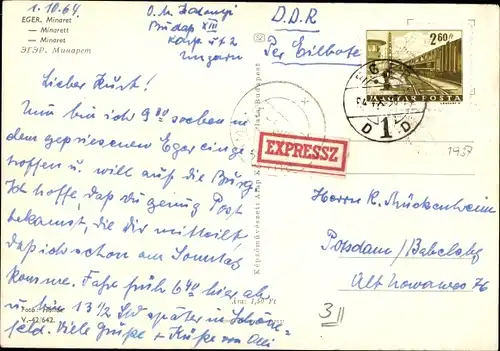 1.10.64
EGER. Minaret
— Minarett
— Minaret
ЭГЭР. Минарет
Budap XIII
Ungarn
D.D.R
Per Eilbote
2.60 Ft
MAGYAR POSTA
EGER
1
D D
EXPRESSZ
1957
Lieber Kurt!
Nun bin ich 9°° soeben in
dem gepriesenen Eger einge
troffen u. will auf die Burg
Ich hoffe, daß du genug Post
bekamst, die dir mitteilt,
daß ich schon am Sonntag
komme. Fahr früh 6⁴⁰ hier ab
u. bin 13½ später in Schöne-
feld. Viele Grüße + Küße von
Herrn K. Mückenheim
Potsdam/Babelsbg
Alt Nowawes 76
Képzőművészeti Alap Budapest
Ára: 1,50 Ft
Foto:
V.-42/642.
3